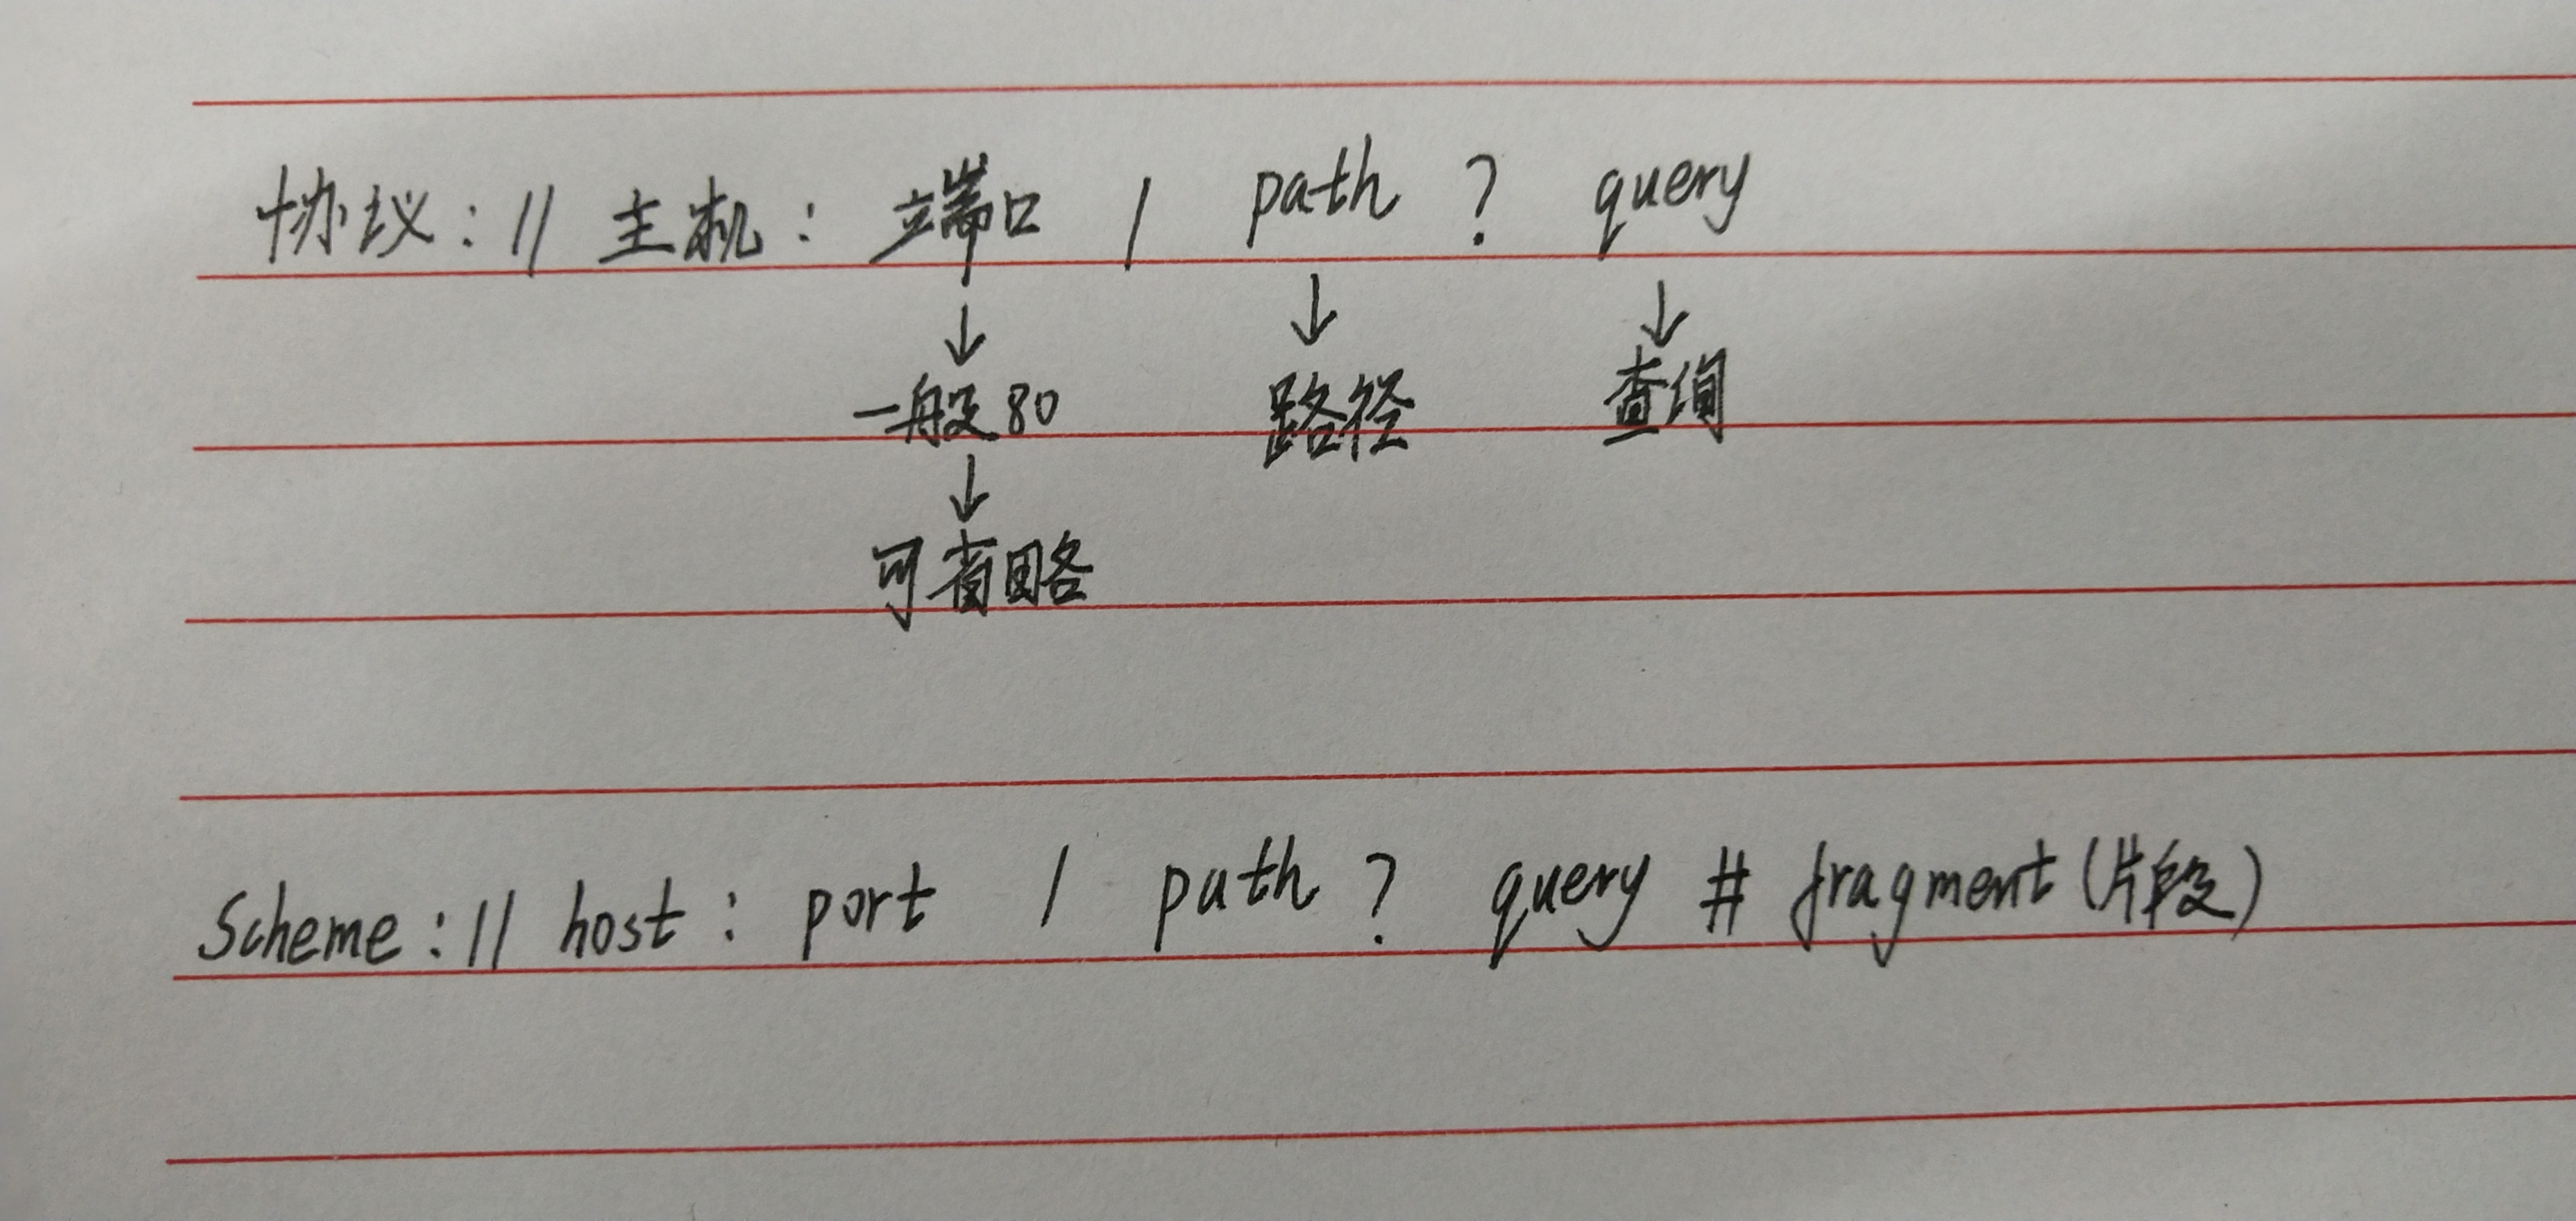 协议：// 主机：端口 / path ? query
↓ ↓ ↓
一般80 路径 查询
↓
可省略
Scheme：// host：port / path ? query # fragment (片段)